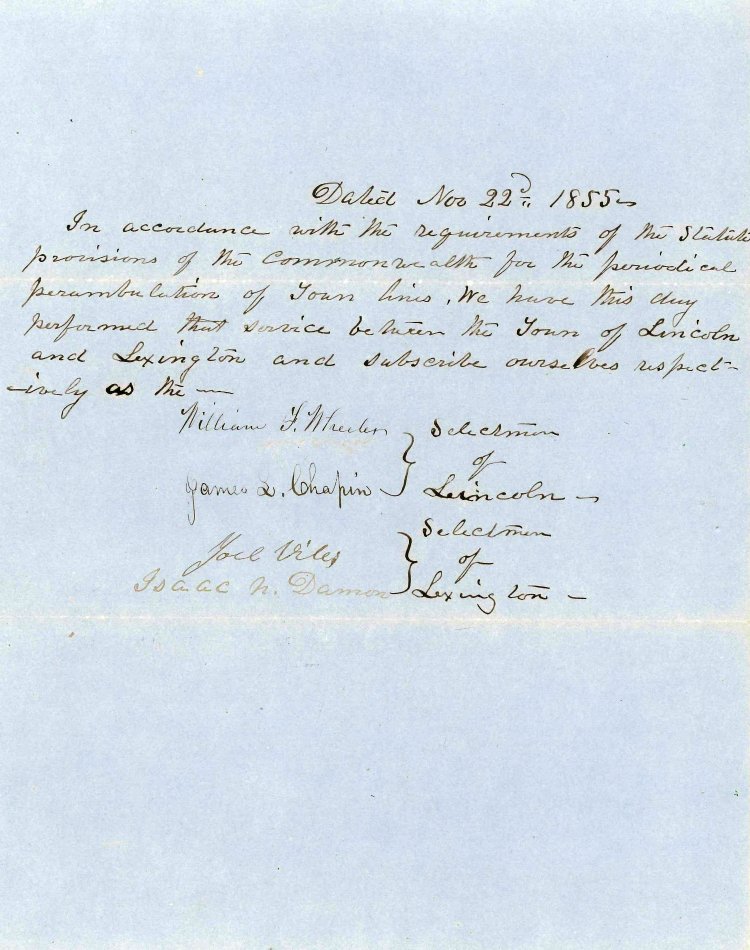 Dated Nov 22d. 1855
In accordance with the requirements of the Statute
provisions of the Commonwealth for the periodical
perambulation of Town lines, We have this day
performed that service between the Town of Lincoln
and Lexington and subscribe ourselves respect-
-ively as the —
William F. Wheeler } Selectmen
of
James L. Chapin } Lincoln —
Selectmen
Joel Viles } of
Isaac N. Damon } Lexington —